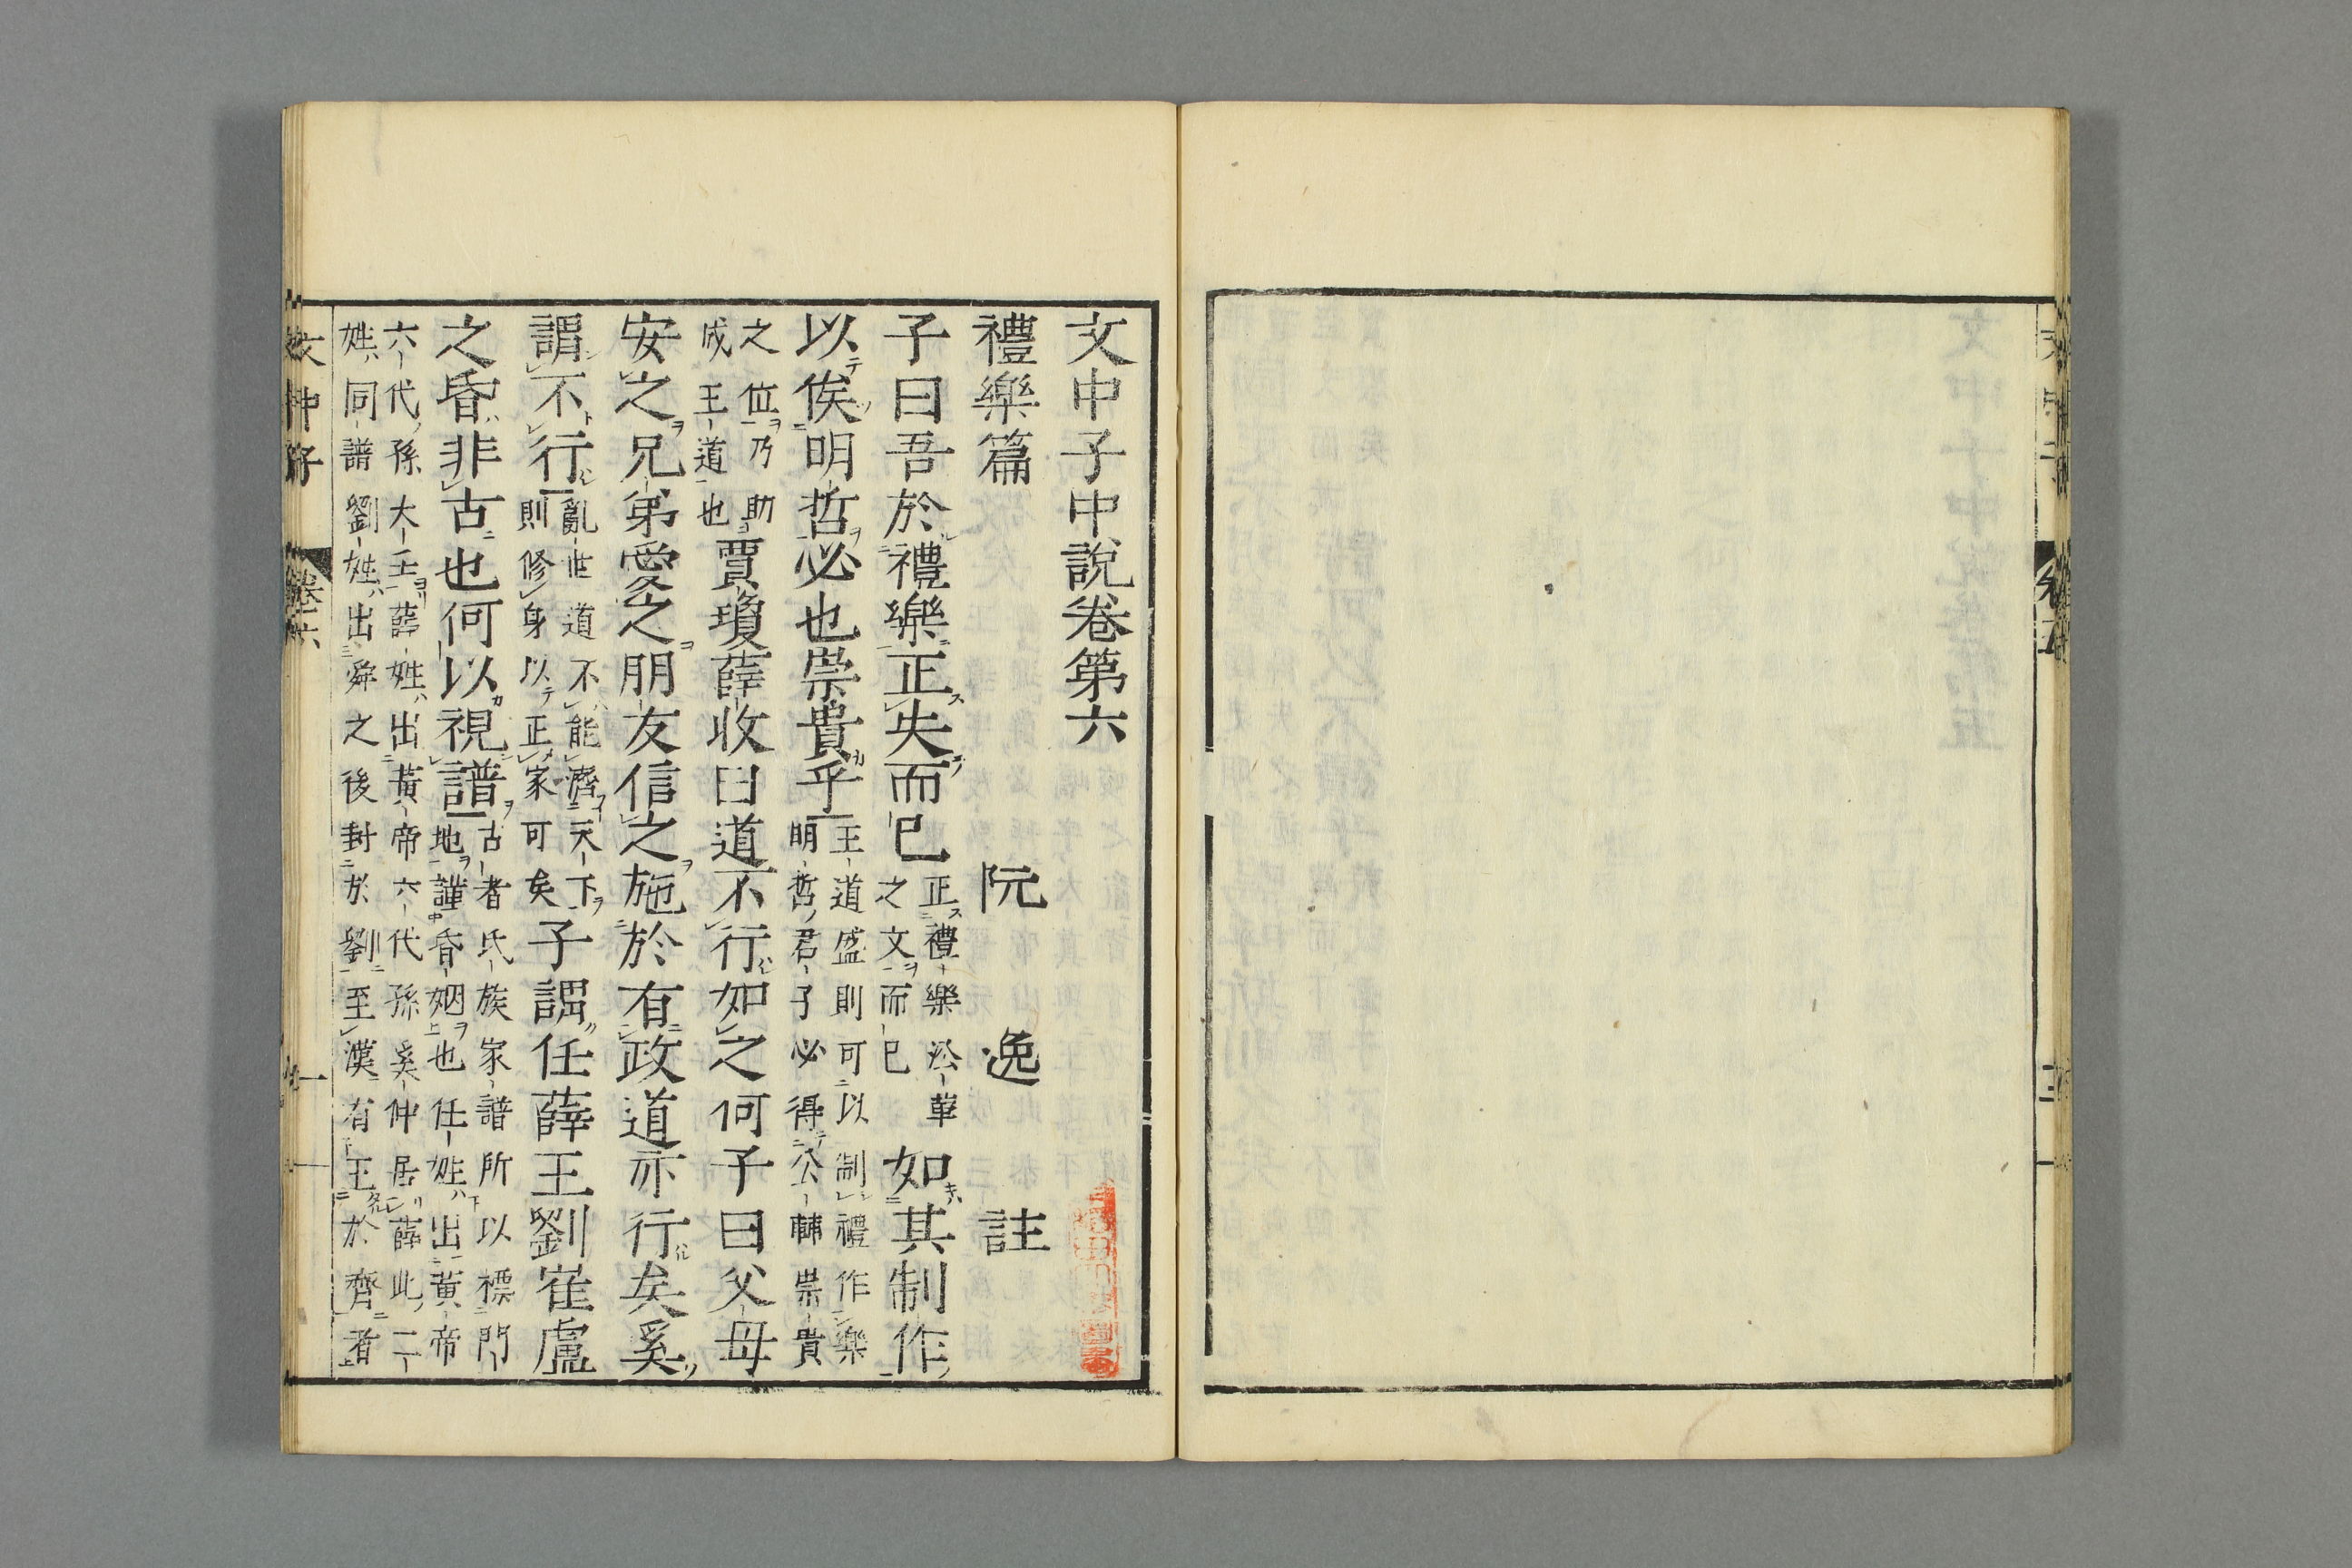 文中子中說卷第六
禮樂篇　阮　逸　註
子曰吾於禮樂正失而已正禮樂沿革之文而已如其制作
以俟明哲必也崇貴乎王道盛則可以制禮作樂明哲君子必得公輔崇貴
之位乃助成王道也賈瓊薛收曰道不行如之何子曰父母
安之兄弟愛之朋友信之施於有政道亦行矣奚
謂不行亂世道不能濟天下則修身以正家可矣子謂任薛王劉崔盧
之昏非古也何以視譜古者氏族家譜所以標門地謹昏姻也任姓出黃帝
六代孫大壬薛姓出黃帝六代孫奚仲居薛此二
姓同譜劉姓出舜之後封於劉至漢有王於齊者
文中子　卷六　一